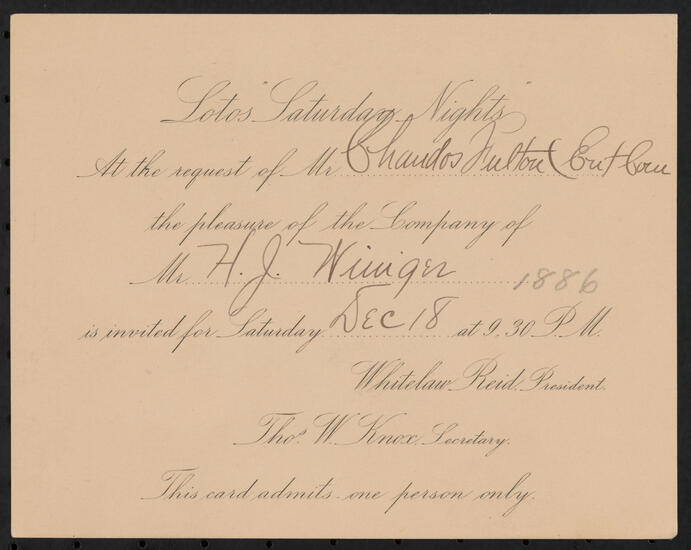 Lotos "Saturday Nights"
At the request of Mr Chandos Fulton (Ent Com
the pleasure of the Company of
Mr. H. J. Winiger 1886
is invited for Saturday Dec 18 at 9.30 P.M.
Whitelaw Reid, President.
Thos. W. Knox, Secretary.
This card admits one person only.